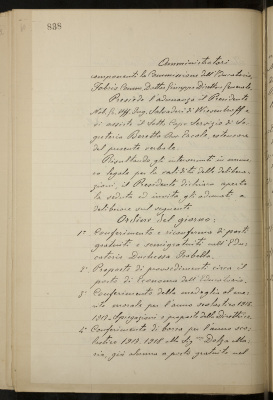 838
Amministratori
componenti la Commissione dell'Educatorio,
Fabris Dottor Giuseppe Direttore Generale.
Presiede l'adunanza il Presidente
Nob. Gr. Uff. Ing. Salvadori di Wiesenhoff e
vi assiste il Sotto Capo Servizio di Se-
greteria Beretta Ercole, estensore
del presente verbale.
Risultando gli intervenuti in nume-
ro legale per la validità delle delibera-
zioni, il Presidente dichiara aperta
la seduta ed invita gli adunati a
deliberare sul seguente
Ordine del giorno:
1° Conferimento e riconferma di posti
gratuiti e semigratuiti nell'Edu-
catorio Duchessa Isabella.
2° Proposta di provvedimenti circa il
posto di Economa dell'Educatorio.
3° Conferimento della medaglia al me-
rito morale per l'anno scolastico 1916-
1917 - Spiegazioni e proposte della Direttrice.
4° Conferimento di borsa per l'anno sco-
lastico 1917-1918 alla Sig.na
ria, già alunna a posto gratuito nel